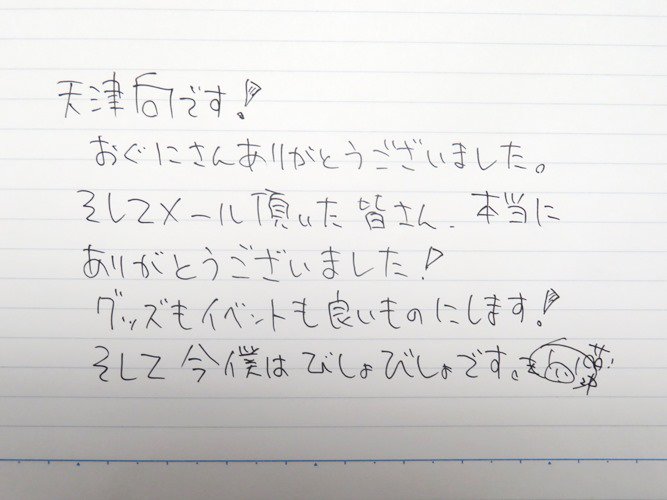 天津向です!
おぐにさんありがとうございました。
そしてメール頂いた皆さん、本当に
ありがとうございました!
グッズもイベントも良いものにします!
そして今僕はびしょびしょです。